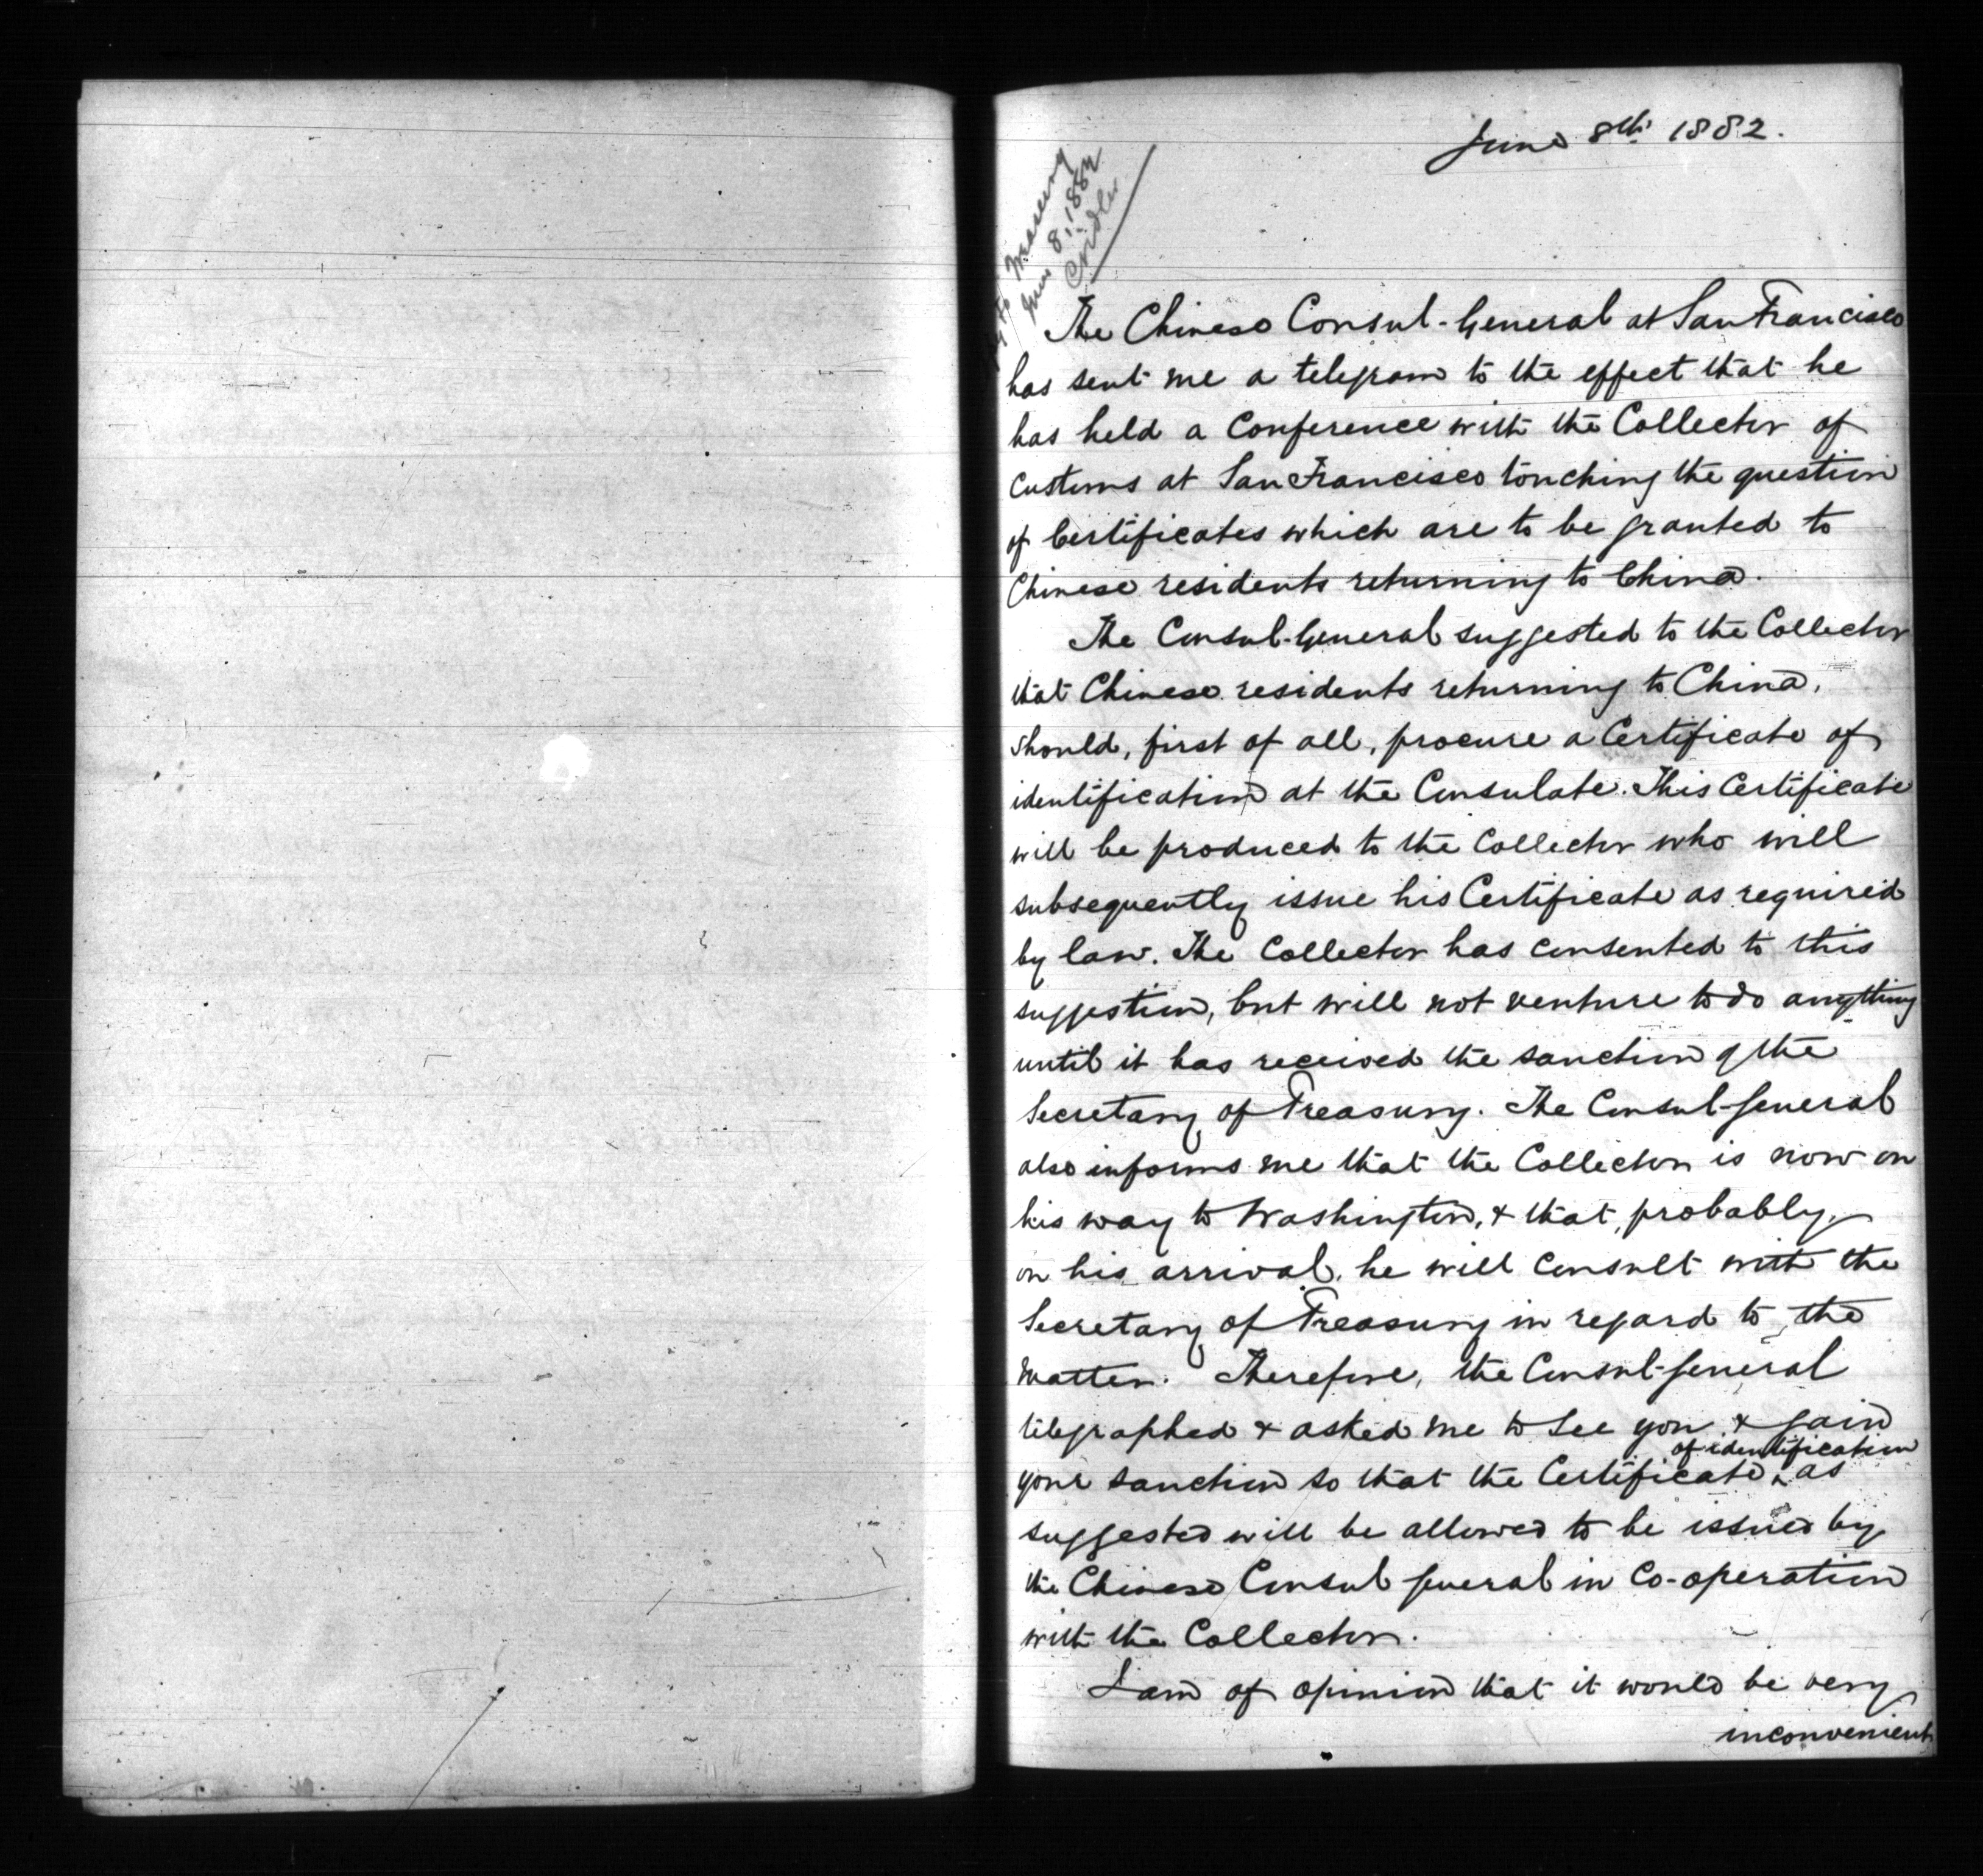 June 8th. 1882.
to Treasury
June 8, 1882
Cridler
The Chinese Consul-General at San Francisco
has sent me a telegram to the effect that he
has held a Conference with the Collector of
Customs at San Francisco touching the question
of Certificates which are to be granted to
Chinese residents returning to China.
The Consul-General suggested to the Collector
that Chinese residents returning to China,
should, first of all, procure a Certificate of
identification at the Consulate. This Certificate
will be produced to the Collector who will
subsequently issue his Certificate as required
by law. The Collector has consented to this
suggestion, but will not venture to do anything
until it has received the sanction of the
Secretary of Treasury. The Consul-General
also informs me that the Collector is now on
his way to Washington, & that, probably,
on his arrival, he will consult with the
Secretary of Treasury in regard to the
matter. Therefore, the Consul-General
telegraphed & asked me to see you & gain
of identification
your sanction so that the Certificate ^ as
suggested will be allowed to be issued by
the Chinese Consul General in Co-operation
with the Collector.
I am of opinion that it would be very
inconvenient